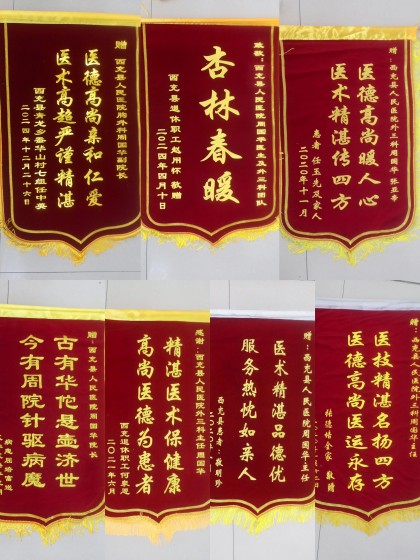 赠：西充县人民医院肺外科周国华副院长
医德高尚亲和仁爱
医术高超严谨精湛
西充县青龙乡蚕华山村七组任中英
二〇二四年十二月二十六日
致敬：西充县人民医院周国华医生及外三科团队
杏林春暖
西充县退休职工赵用怀 敬赠
二〇二四年四月十日
赠：西充县人民医院外三科周国华 张亚帝
医德高尚暖人心
医术精湛传四方
患者 任玉先及家人
二〇二〇年十一月
赠：西充县人民医院周国华院长
古有华佗悬壶济世
今有周院针驱病魔
感谢：西充县人民医院外三科主任周国华
精湛医术保健康
高尚医德为患者
西充退休职工何泉恩
二〇二一年六月
赠：西充县人民医院周国华主任
医术精湛品德优
服务热忱如亲人
西充县患者：敬明珍
赠：西充县人民医院外三科周国华主任
医技精湛名扬四方
医德高尚医运永存
张德培全家 敬赠